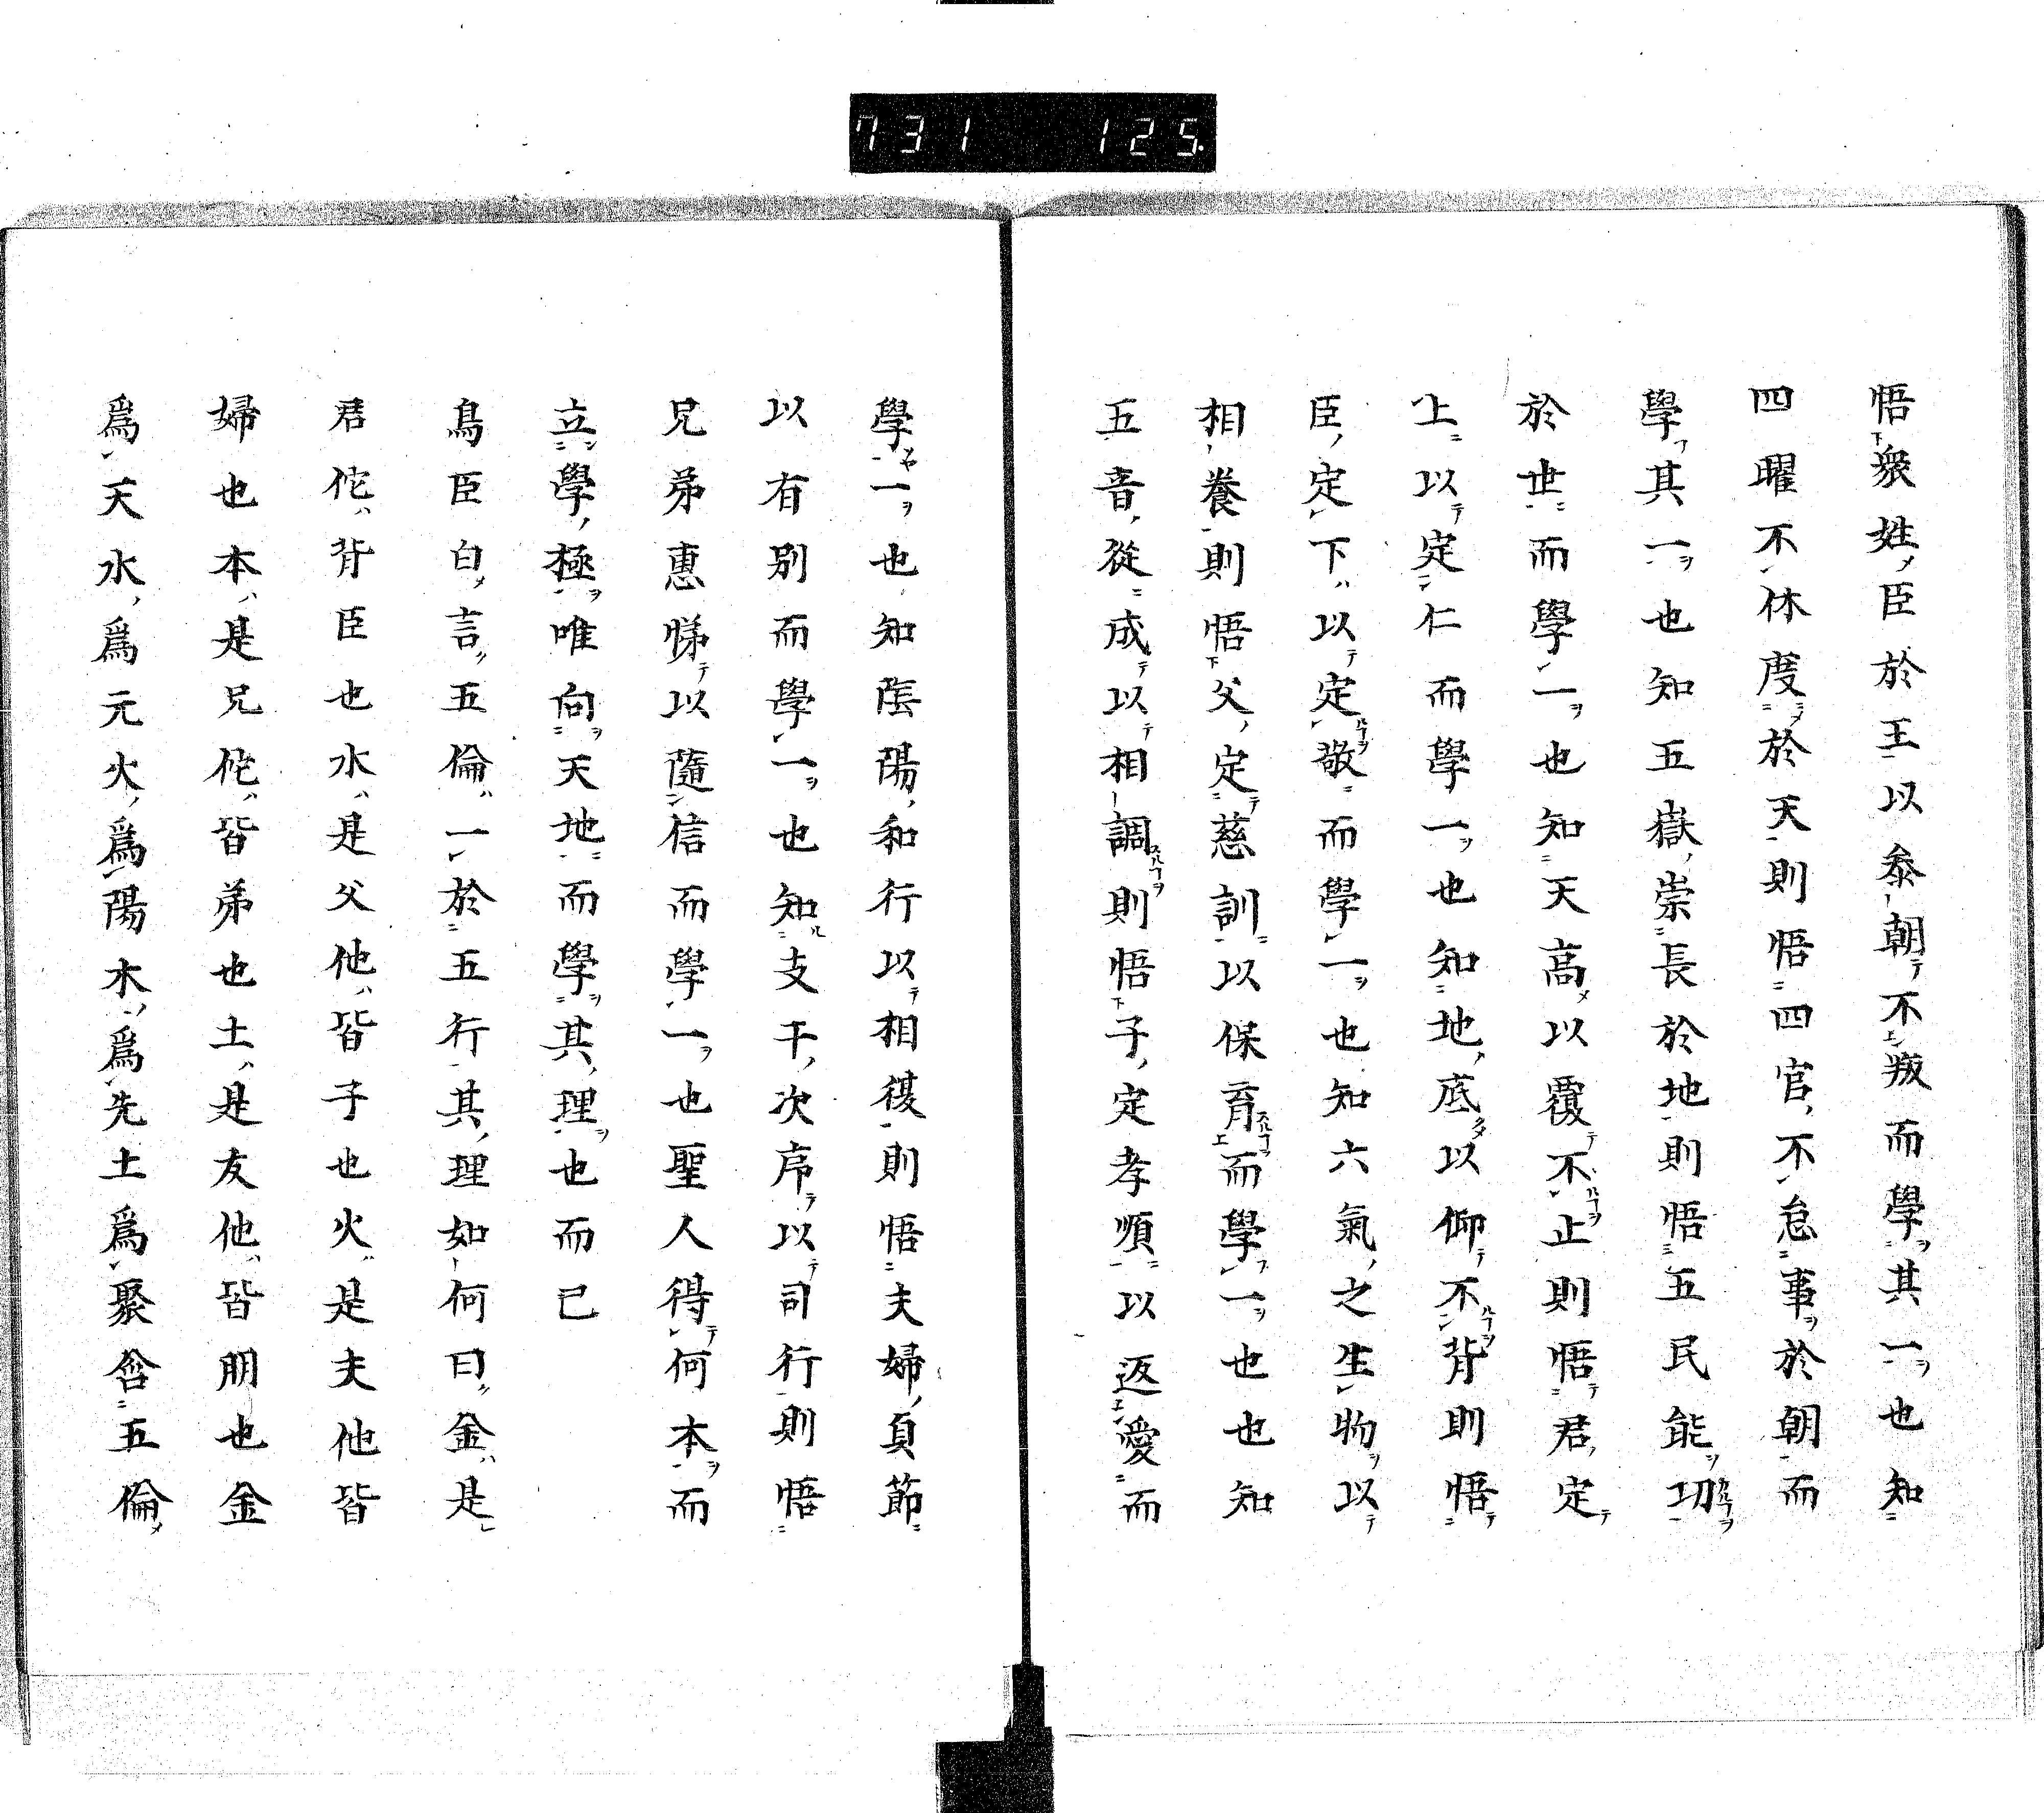 731 125.
悟衆姓臣於王以叅朝不叛而學其一也知
四曜不休度於天則悟四官不怠事於朝而
學其一也知五嶽崇長於地則悟五民能功
於世而學一也知天高以覆不止則悟君定
上以定仁而學一也知地底以仰不背則悟
臣定下以定敬而學一也知六氣之生物以
相養則悟父定慈訓以保育而學一也也知
五音從成以相調則悟子定孝順以返愛而
學一也知陰陽和行以相復則悟夫婦貞節
以有別而學一也知支干次序以司行則悟
兄弟惠悌以隨信而學一也聖人得何本而
立學極唯向天地而學其理也而已
鳥臣白言五倫一於五行其理如何曰金是
君佗背臣也水是父他皆子也火是夫他皆
婦也本是兄佗皆弟也土是友他皆朋也金
爲天水爲元火爲陽木爲先土爲聚含五倫